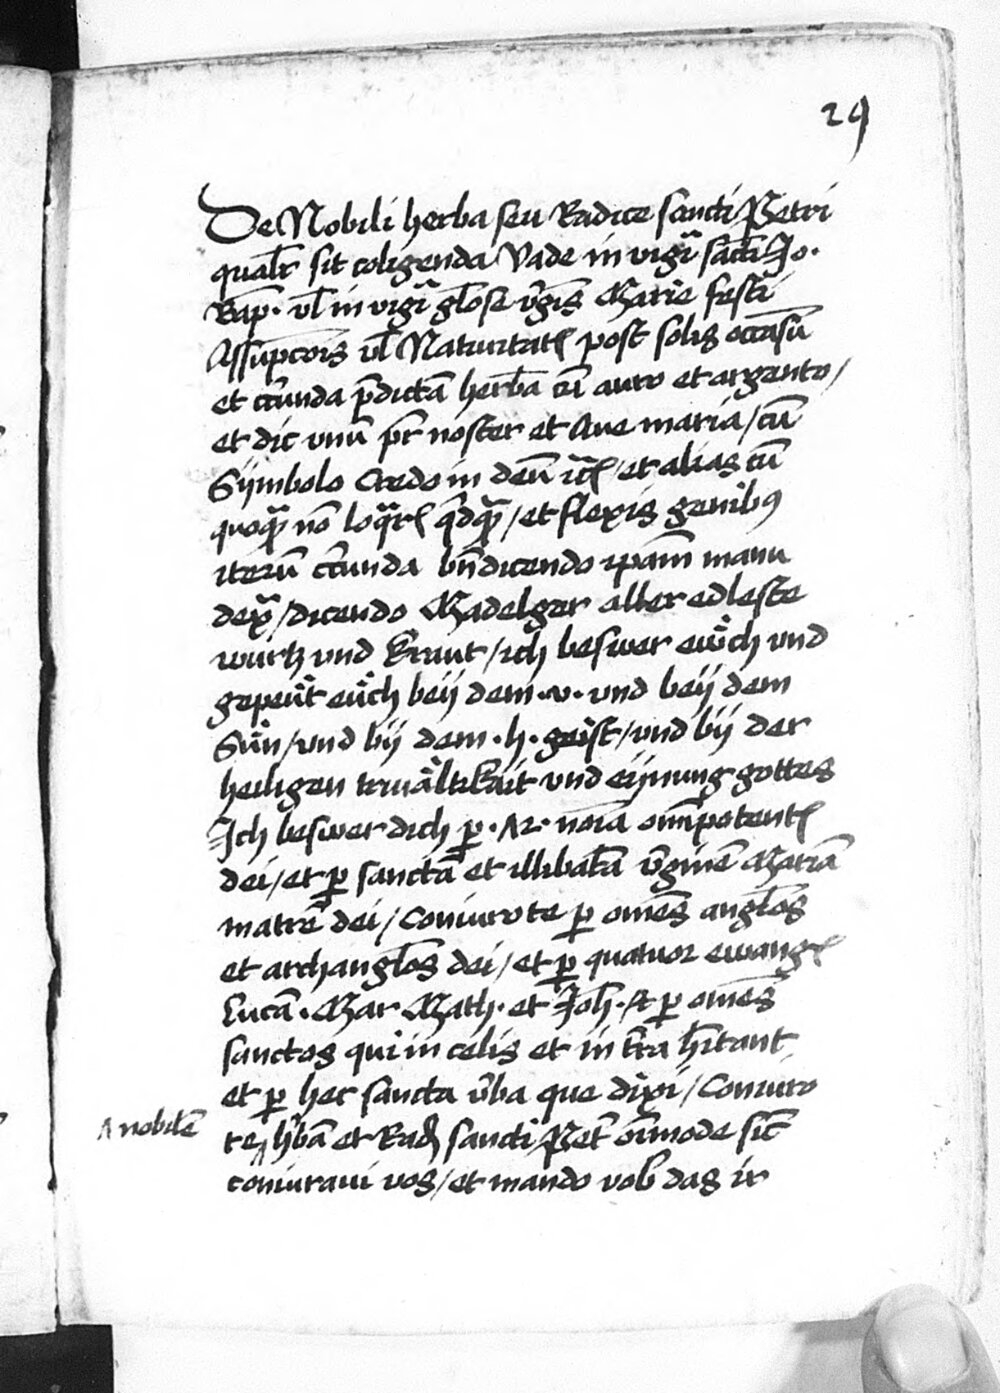 29
De Nobili herba seu Radice sancti Petri
qualr̄ sit coligenda Vade in vigl̄ia sāti Jo.
Bap. vl̄ in vigl̄ia gl̄ose v̄gīs Marie festi
Assūpcōis vl̄ Natiuitatꝭ post solis occasū
et ccūnda p̄dictā herbā cū auro et argento /
et dic vnū pr̄ noster et Aue maria / cū
Sijmbolo Credo in deū rc̄ / et alias cū
quoqꝫ nō loq̄rꝭ q̄dqꝫ / et flexis genibꝰ
iterū ccūnda bn̄dicendo ipam̄ manu
dex̄ / dicendo Madelger aller edleste
wurtz vnd kraut / ich beswer eůch vnd
gepeůt eůch beij dem .v. vnd beij dem
Sůn / vnd bij dem .h. geist / vnd bij der
heiligen triuåltikait vnd eijnung gottes
Ich beswer dich ꝑ .72. noīa omīpotentꝭ
dei / et ꝑ sanctā et illibatā v̄ginē Mariā
matrē dei / Coniuro te ꝑ omēs angl̄os
et archangl̄os dei / et ꝑ quatuor ewangꝭ
Lucā . Mar Math. et Joh̄. & ꝑ omēs
sanctos qui in celis et in tr̄a h̄itant
et ꝑ hec sancta v̄ba que dixi / Coniuro
^ nobilē
te ^ h̄bā et Rad̄ sancti Pet̄ oīmode sic̄
coniuraui vos / et mando vob̄ das ir